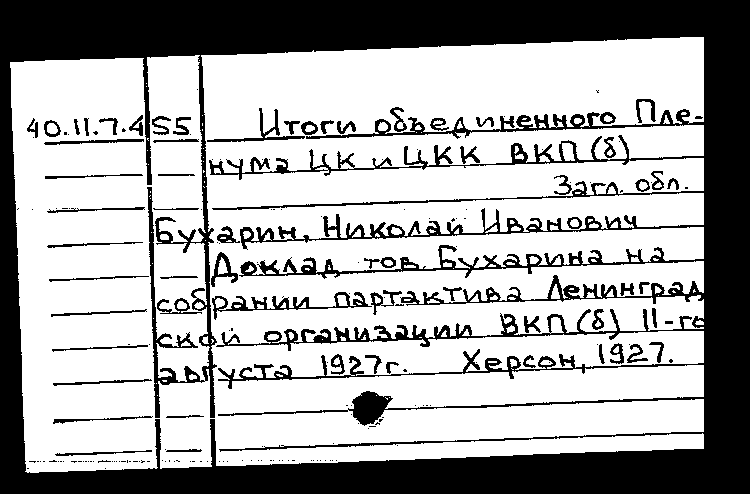 40.11.7.4 S5 Итоги объединенного Пле-
нума ЦК и ЦКК ВКП(б)
Загл. обл.
Бухарин, Николай Иванович
Доклад тов. Бухарина на
собрании партактива Ленинград
ской организации ВКП(б) 11-го
августа 1927г. Херсон, 1927.